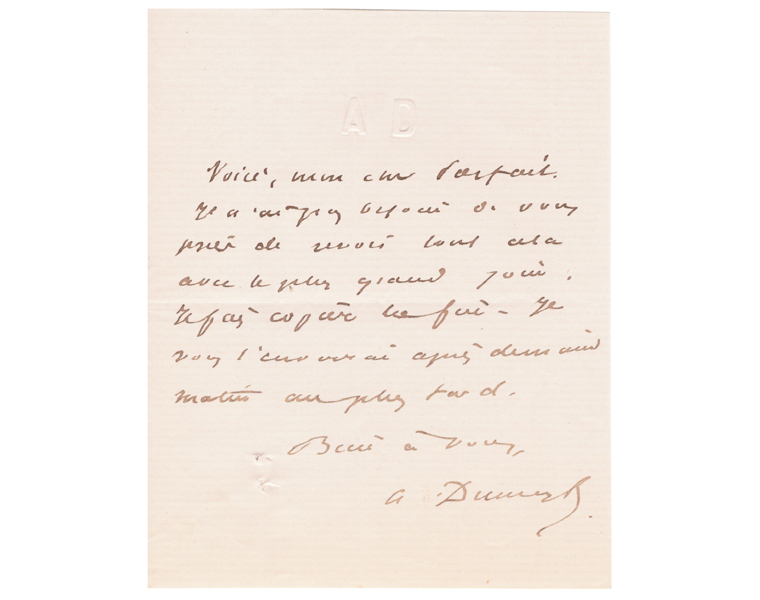 A D
Voici, mon cher Parfait.
Je n'ai pas besoin de vous
prier de revoir tout cela
avec le plus grand soin.
Je fais copier la fin - Je
vous l'enverrai après demain
matin au plus tard.
Bien à vous,
A Dumas f.